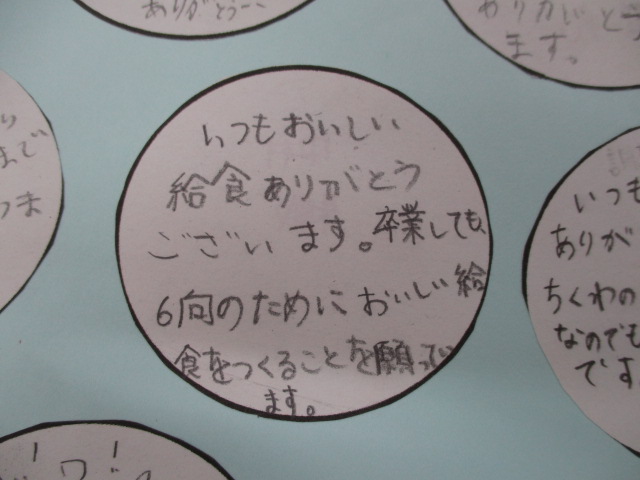 ありがとうー
ありがとう
ます。
いつもおいしい
給食ありがとう
ございます。卒業しても、
6向のためにおいしい給
食をつくることを願ってい
ます。
まで
つま
いつも
ありが
ちくわの
なのでも
です